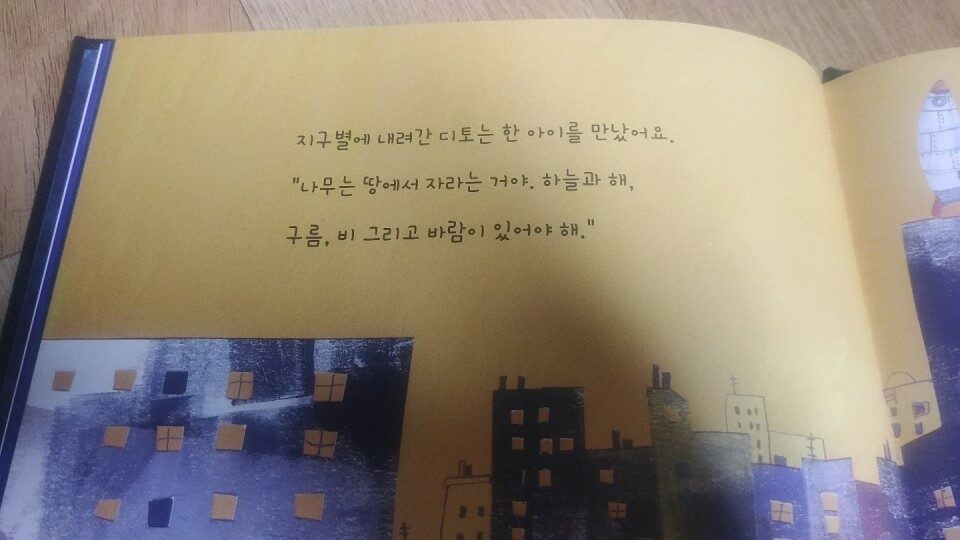 지구별에 내려간 디토는 한 아이를 만났어요.
"나무는 땅에서 자라는 거야. 하늘과 해,
구름, 비 그리고 바람이 있어야 해."